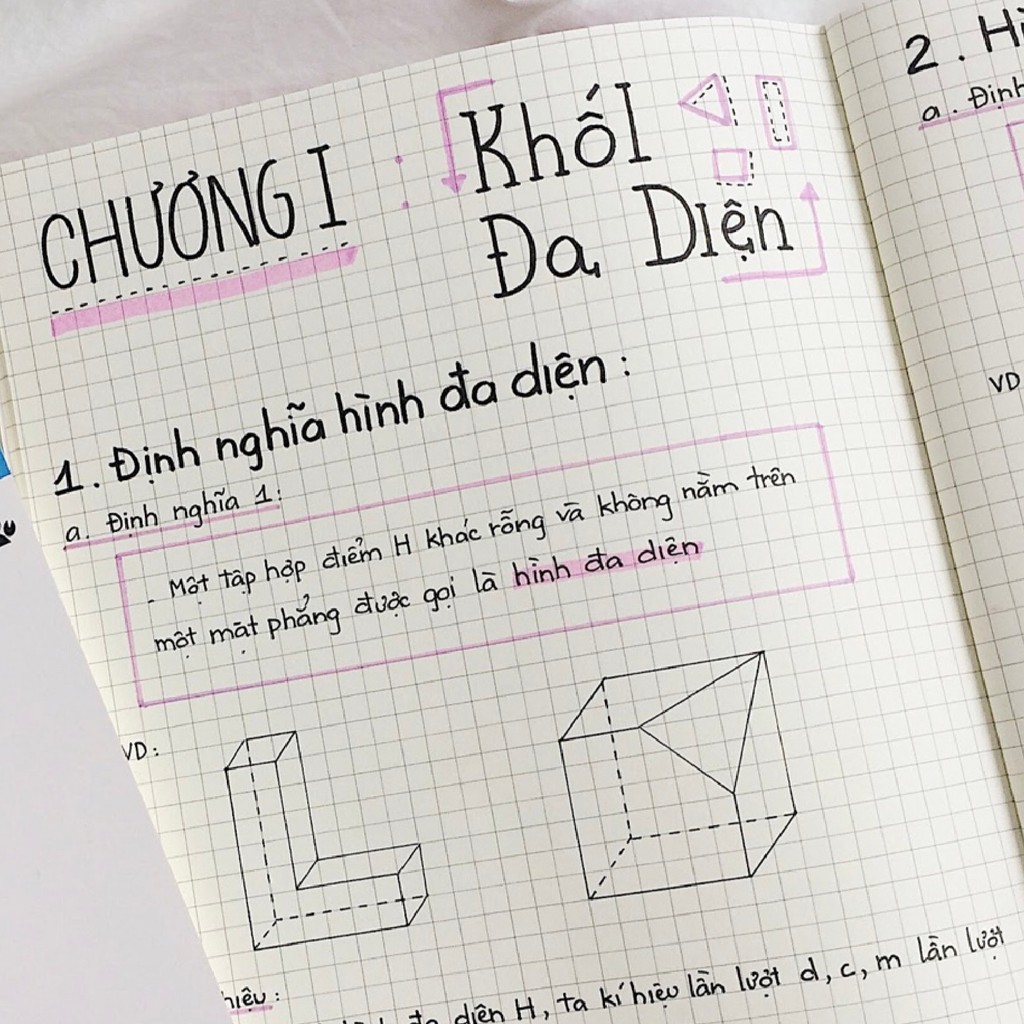 CHƯƠNG I : Khối
Đa Diện
1. Định nghĩa hình đa diện :
a. Định nghĩa 1:
- Một tập hợp điểm H khác rỗng và không nằm trên
một mặt phẳng được gọi là hình đa diện
VD :
hiệu :
đa diện H, ta kí hiệu lần lượt d, c, m lần lượt
2. Hì
a. Định
VD